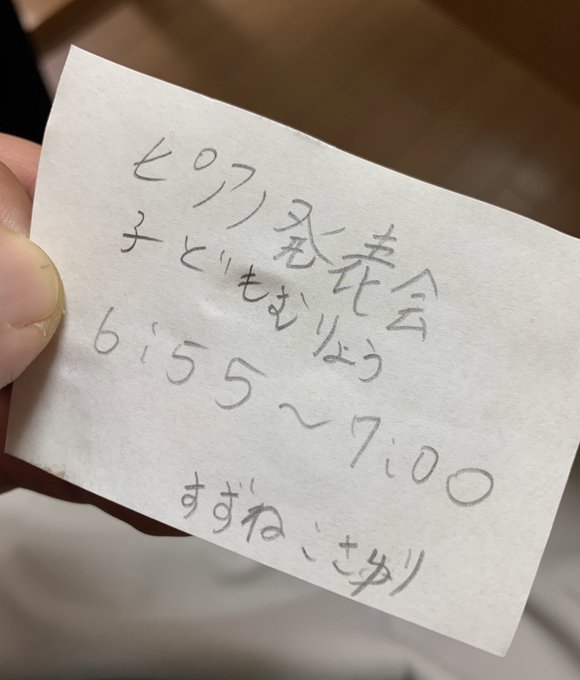 ピアノ発表会
子どもむりょう
6:55〜7:00
すずね:さゆり